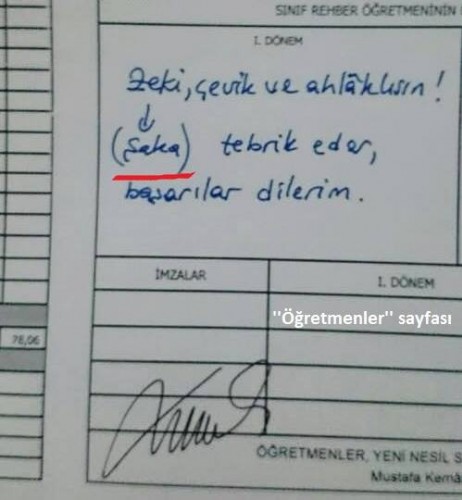 SINIF REHBER ÖĞRETMENİNİN
I. DÖNEM
Zeki, çevik ve ahlâklısın!
(Şaka) tebrik eder,
başarılar dilerim.
İMZALAR
I. DÖNEM
"Öğretmenler" sayfası
78,06
ÖĞRETMENLER, YENİ NESİL S
Mustafa Kemâ